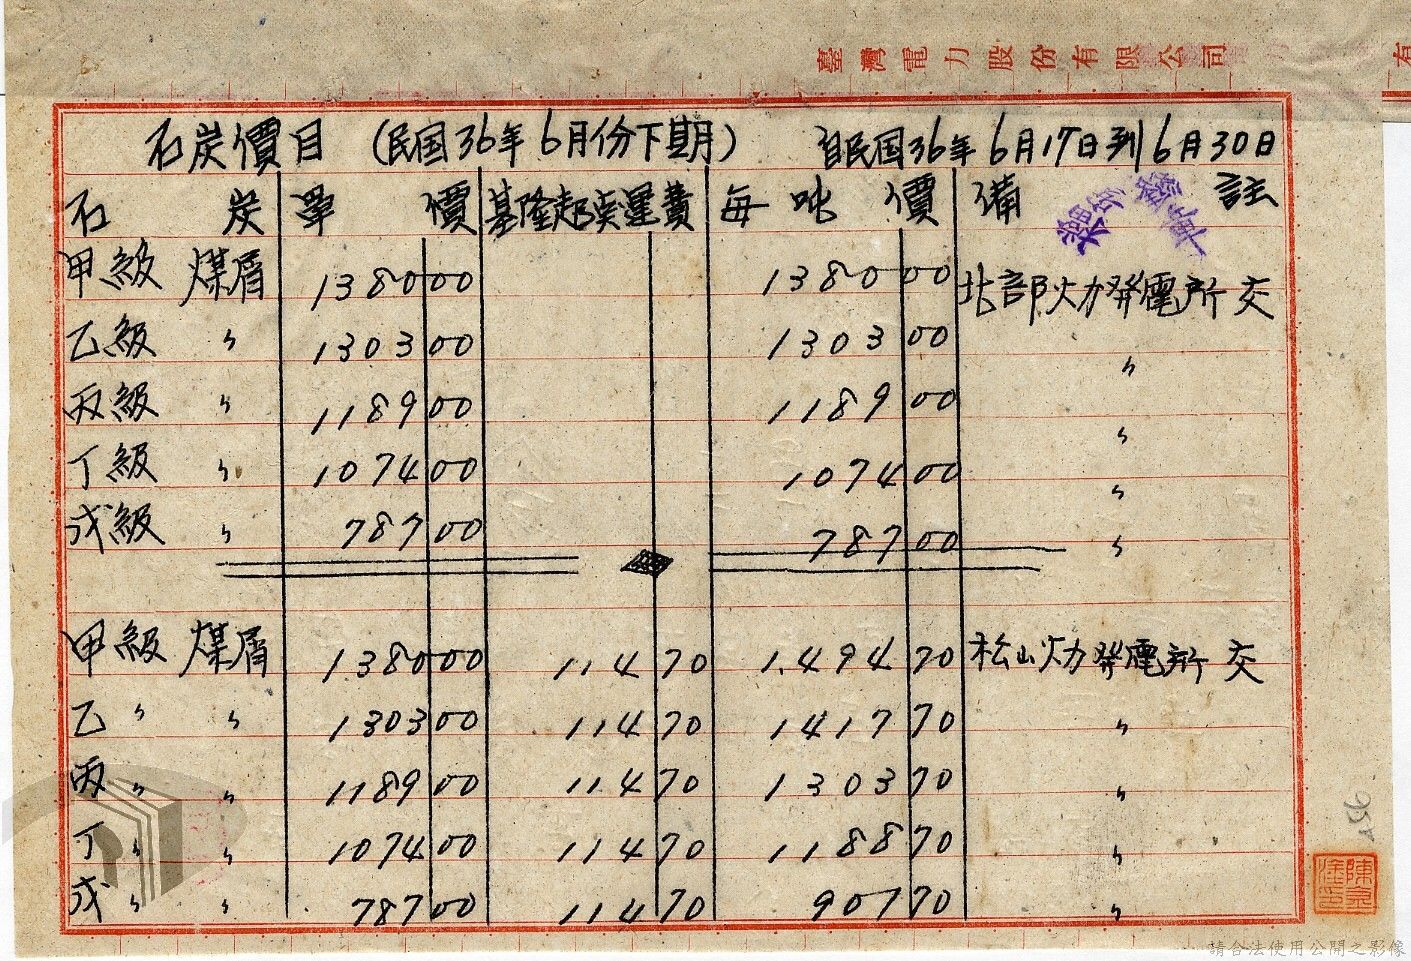 臺灣電力股份有限公司
石炭價目 (民国36年6月份下期) 自民国36年6月17日到6月30日
石炭 單價 基隆起卸運費 每吨價 備註
甲級 煤屑 1380 00 1380 00 北部火力發電所交
乙級 〃 1303 00 1303 00 〃
丙級 〃 1189 00 1189 00 〃
丁級 〃 1074 00 1074 00 〃
戊級 〃 787 00 787 00 〃
甲級 煤屑 1.380 00 114 70 1.494 70 松山火力發電所交
乙 〃 〃 1303 00 114 70 1417 70 〃
丙 〃 〃 1189 00 114 70 1303 70 〃
丁 〃 〃 1074 00 114 70 1188 70 〃
戊 〃 〃 787 00 114 70 907 70 〃
請合法使用公開之影像